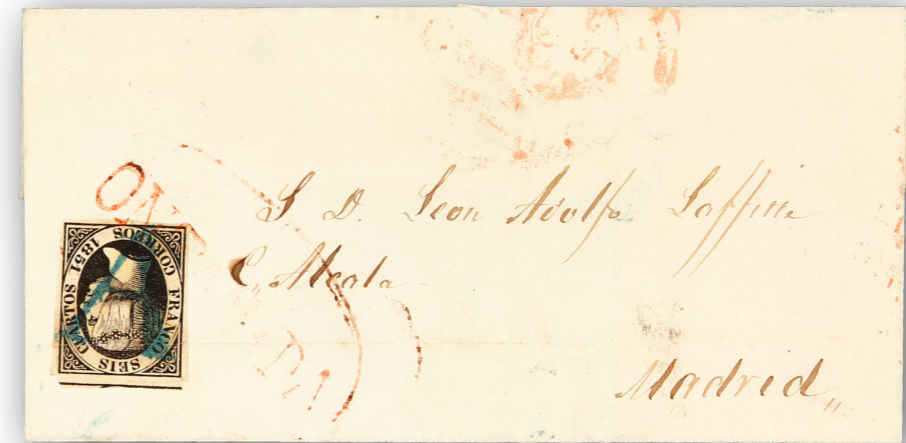 S D. Leon Adolfo Laffitte
C, Alcala
Madrid
CORREOS 1851
FRANCO SEIS CUARTOS